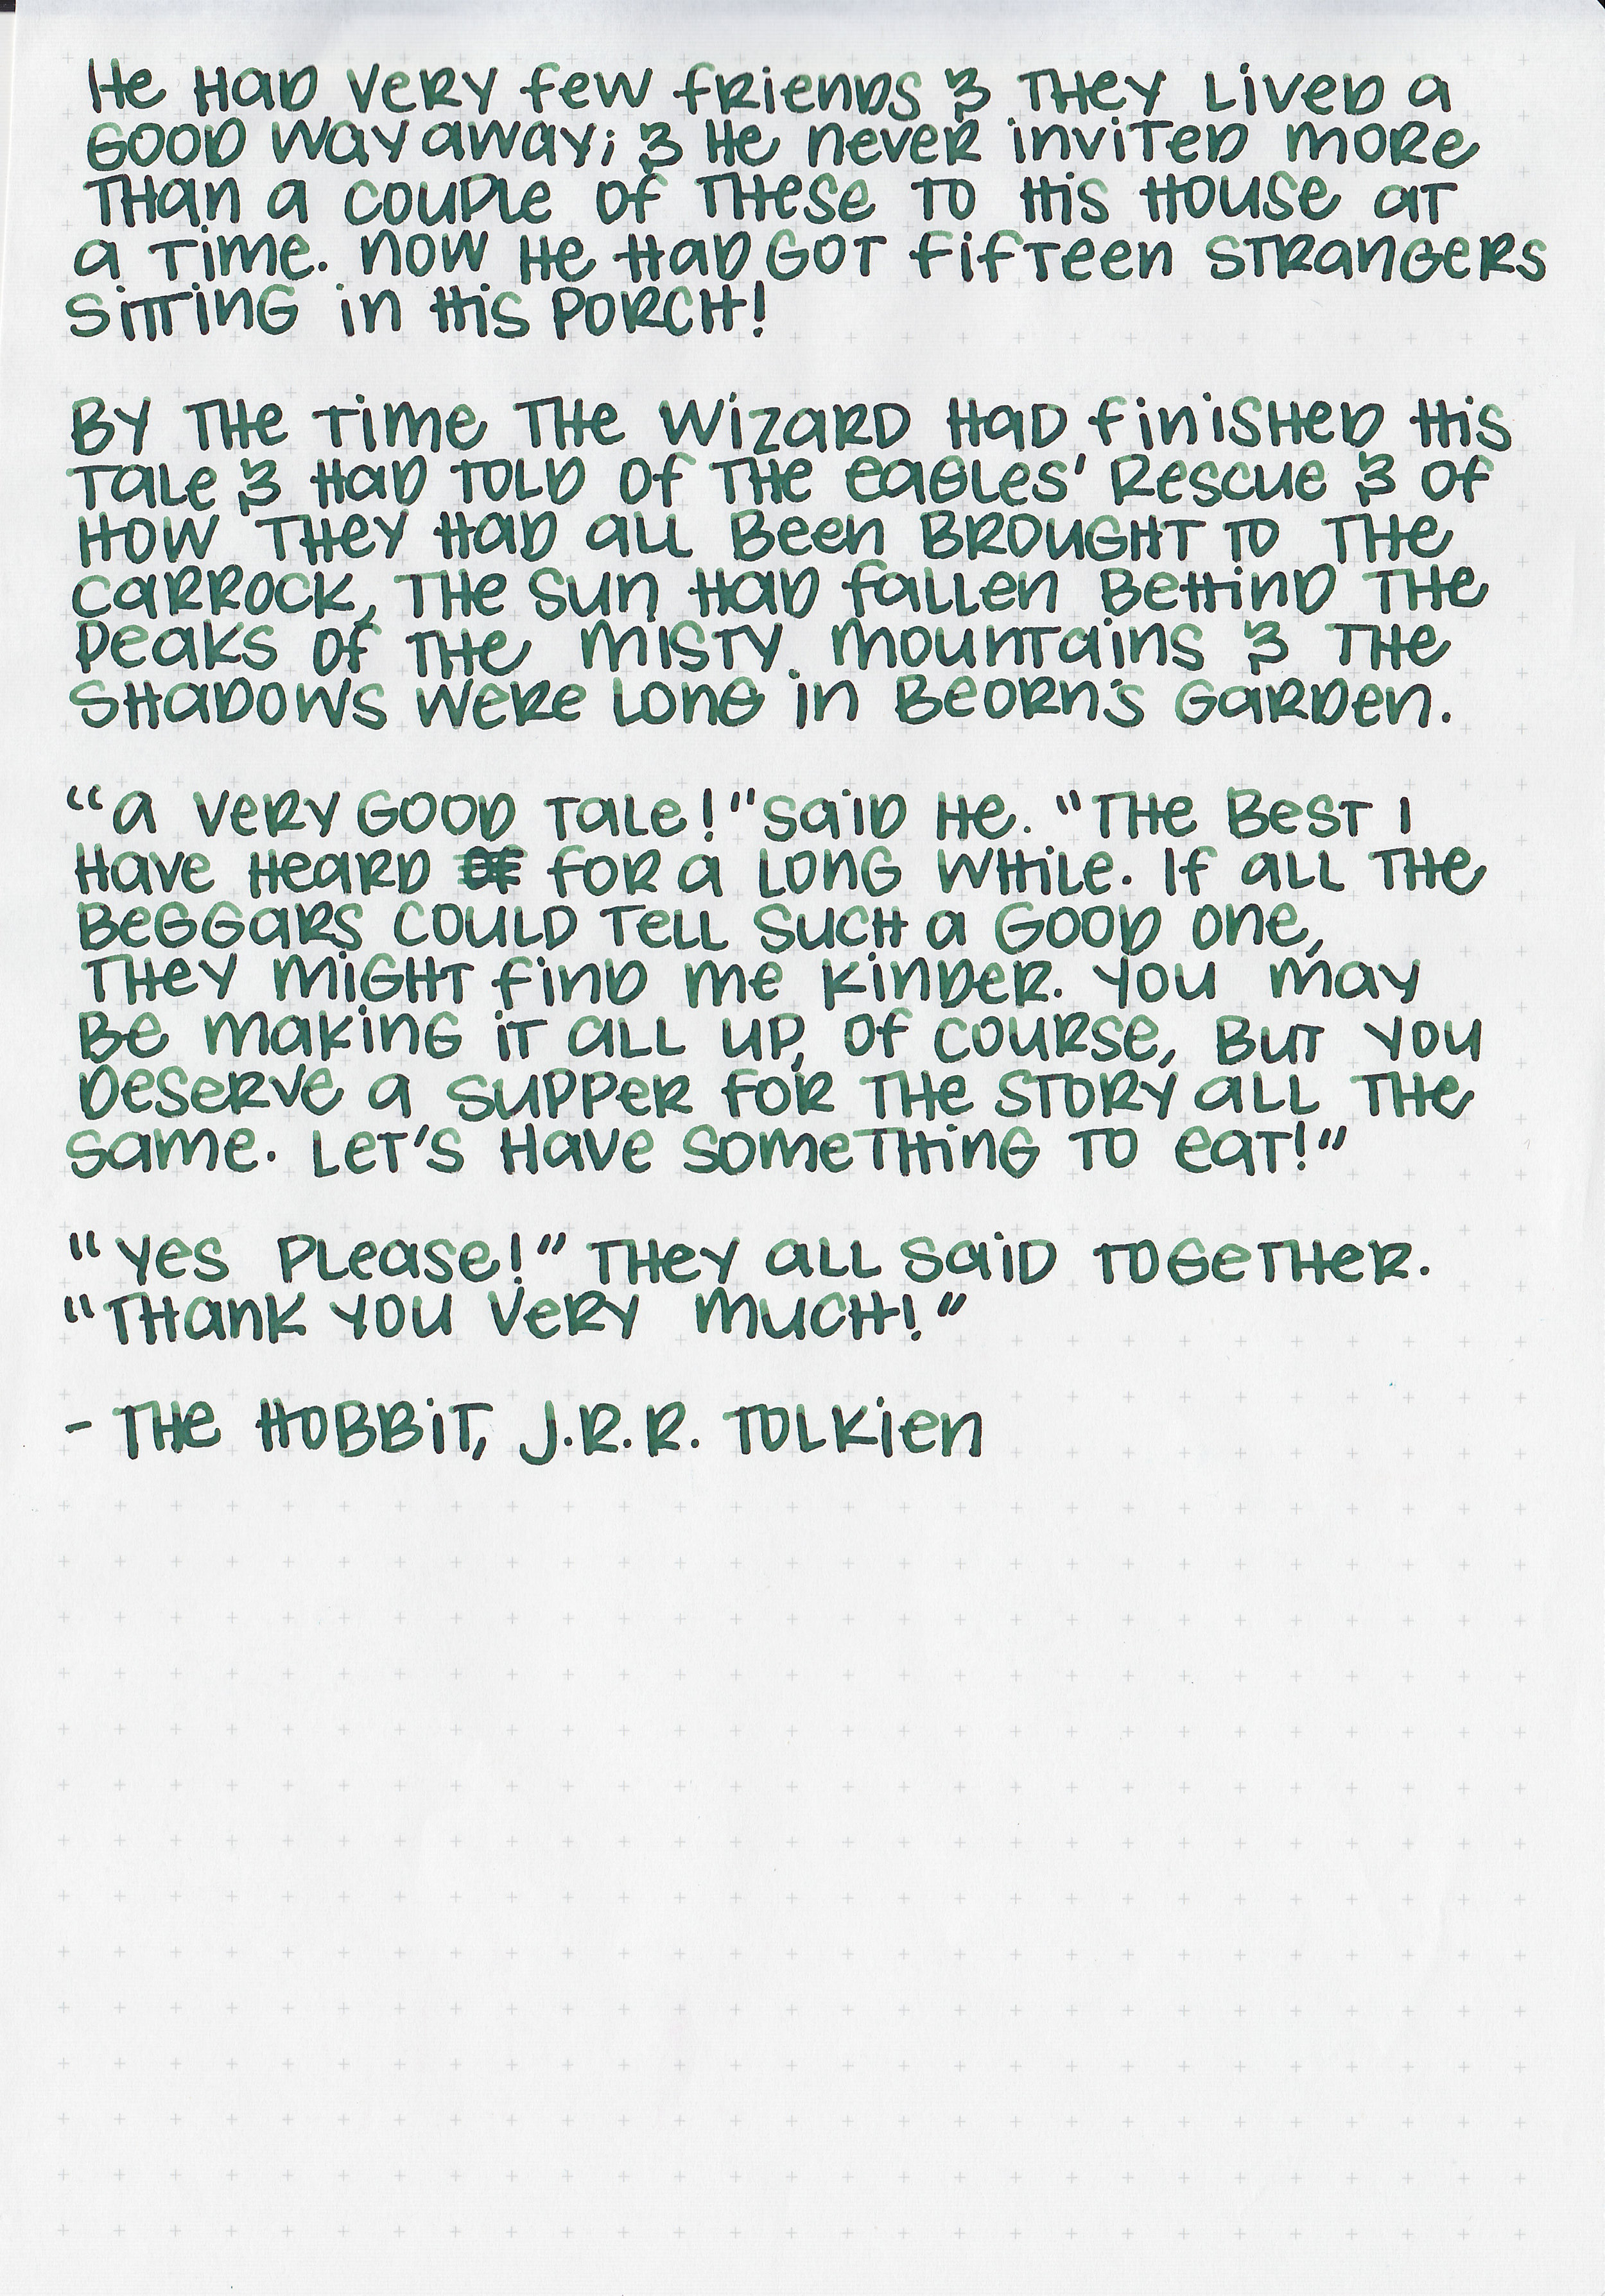 He had very few friends & they lived a
good way away; & he never invited more
than a couple of these to his house at
a time. Now he had got fifteen strangers
sitting in his porch!
By the time the wizard had finished his
tale & had told of the eagles' rescue & of
how they had all been brought to the
Carrock, the sun had fallen behind the
peaks of the Misty Mountains & the
shadows were long in Beorn's garden.
"A very good tale!" said he. "The best I
have heard for a long while. If all the
beggars could tell such a good one,
they might find me kinder. You may
be making it all up, of course, but you
deserve a supper for the story all the
same. Let's have something to eat!"
"Yes please!" they all said together.
"Thank you very much!"
- The Hobbit, J.R.R. Tolkien